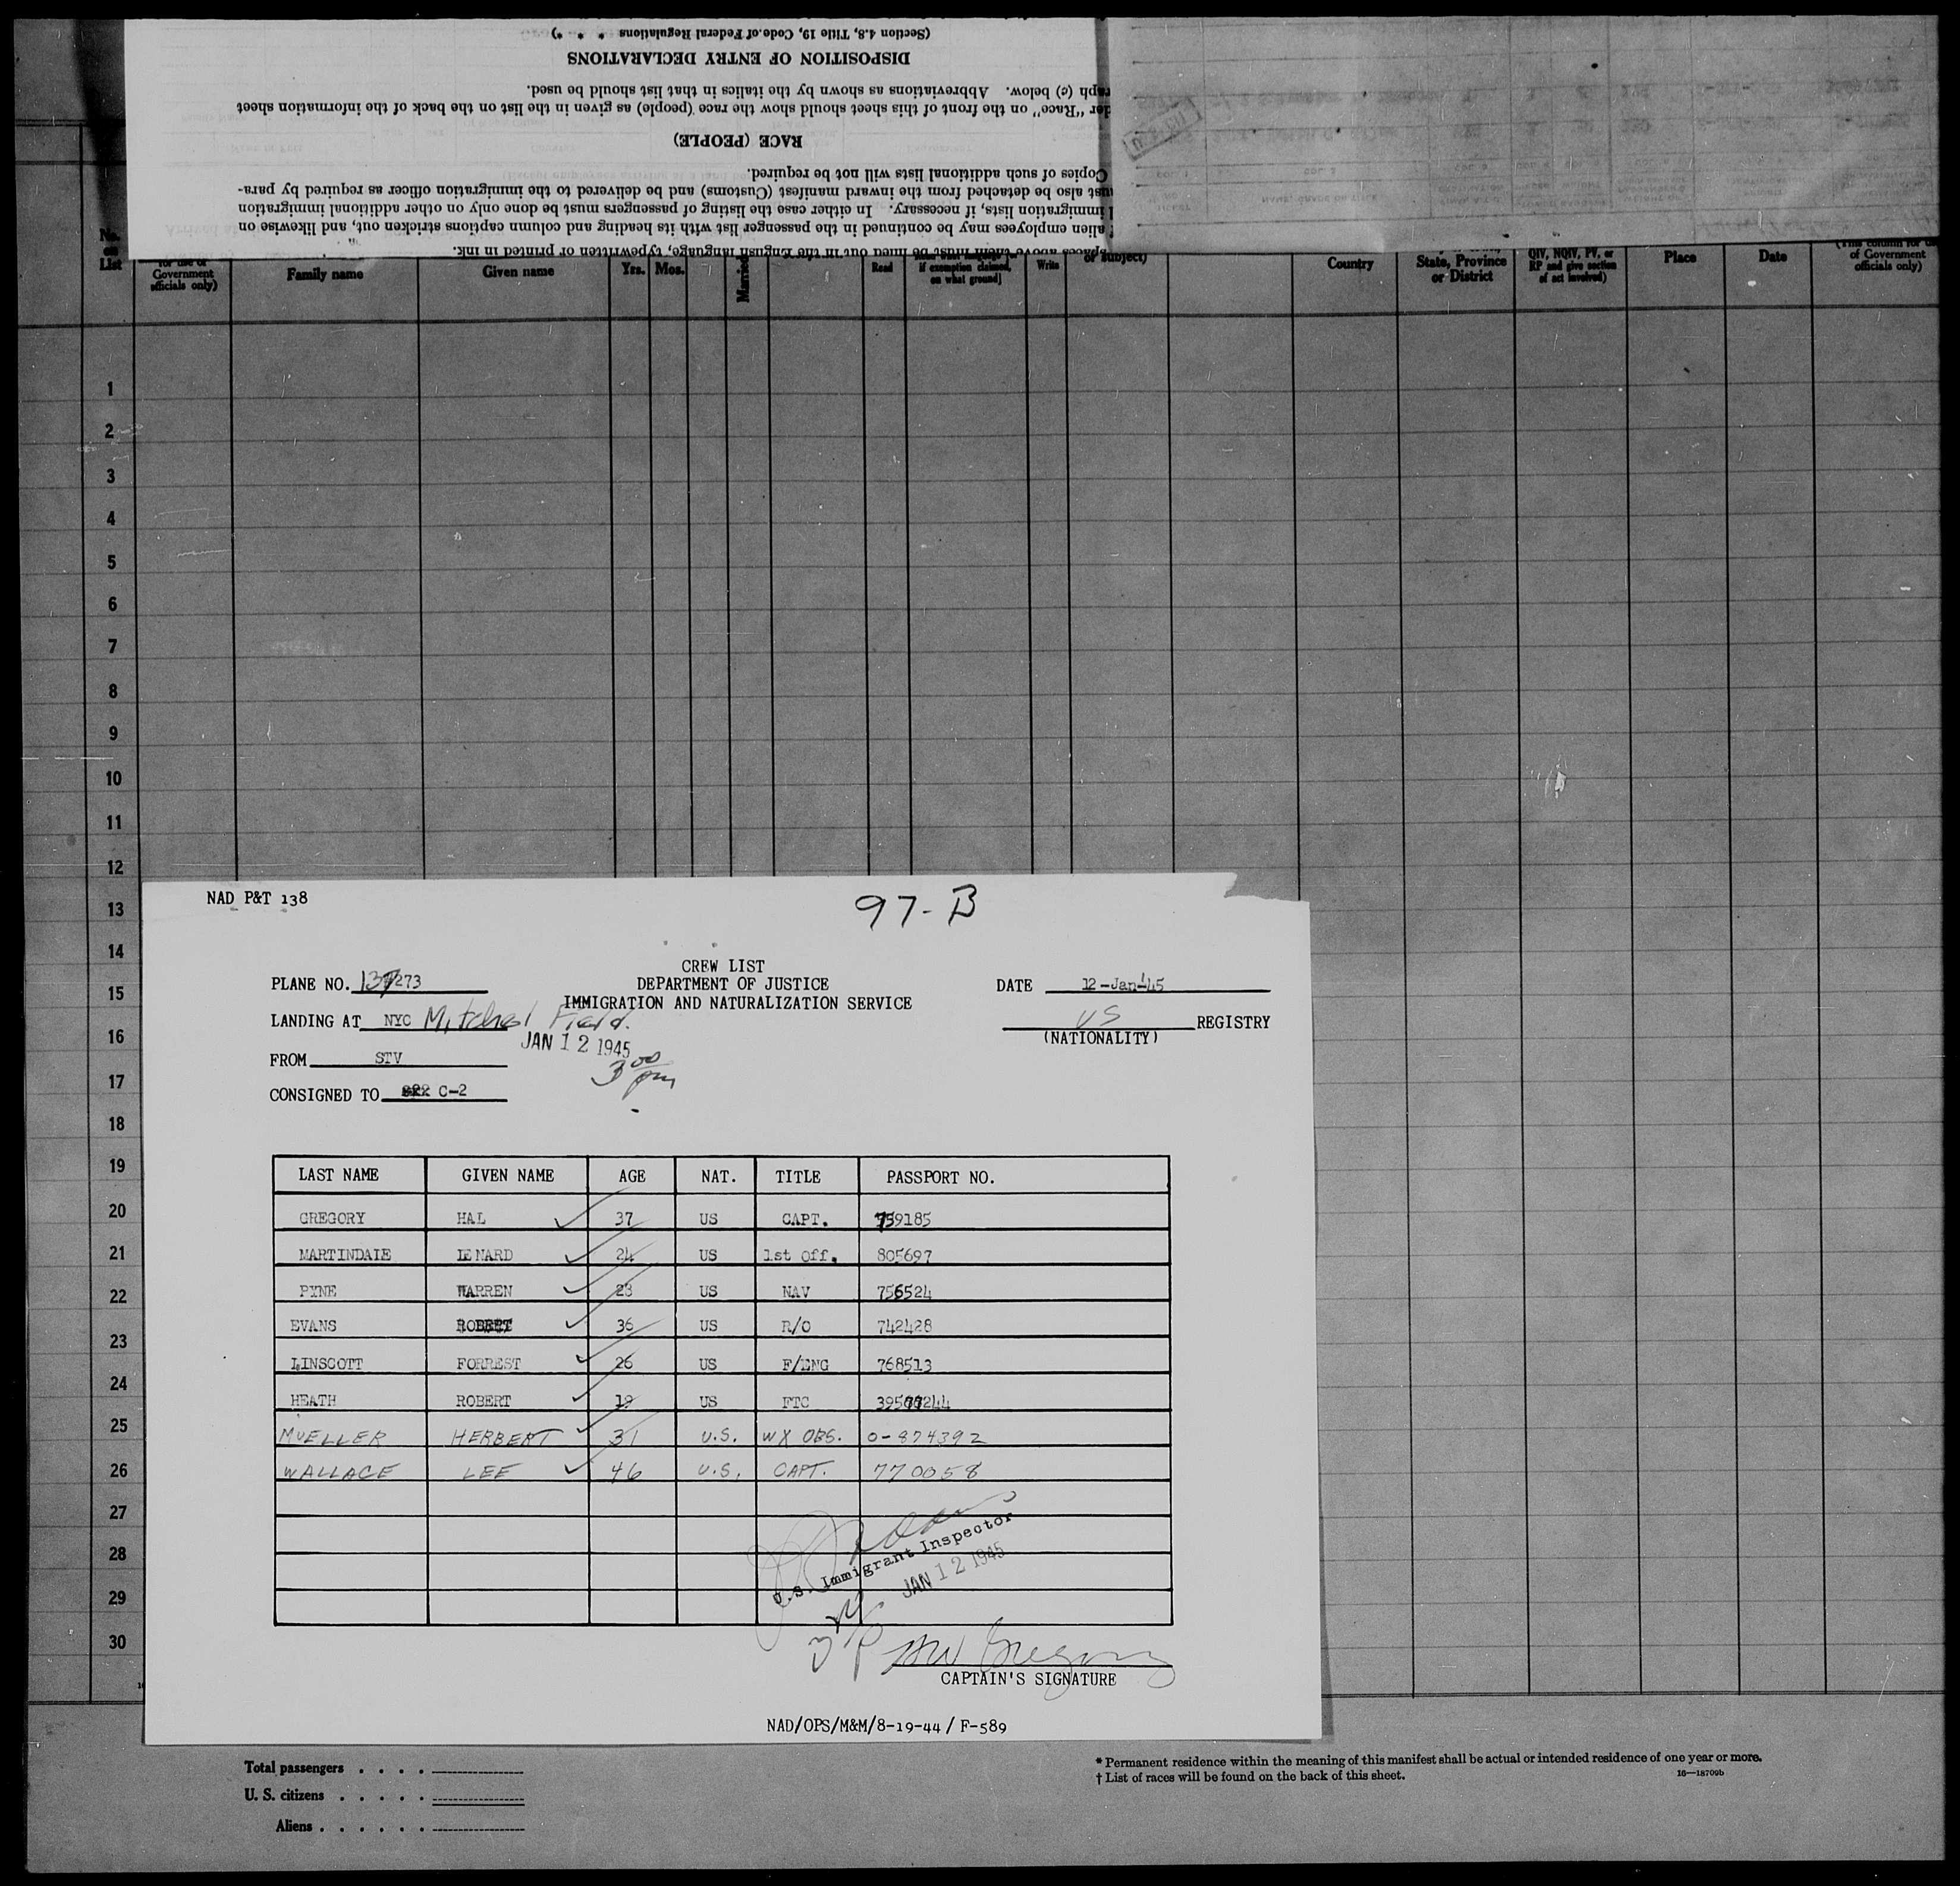 (Section 4.8, Title 19, Code of Federal Regulations * * *)
DISPOSITION OF ENTRY DECLARATIONS
raph (e) below. Abbreviations as shown by the italics in that list should be used.
der "Race" on the front of this sheet should show the race (people) as given in the list on the back of the information sheet
RACE (PEOPLE)
Copies of such additional lists will not be required.
ust also be detached from the inward manifest (Customs) and be delivered to the immigration officer as required by para-
l immigration lists, if necessary. In either case the listing of passengers must be done only on other additional immigration
f alien employees may be continued in the passenger list with its heading and column captions stricken out, and likewise on
spaces above them must be filled out in the English language, typewritten or printed in ink.
No. on List
for use of Government officials only)
Family name
Given name
Yrs.
Mos.
Married
Read
if exemption claimed, on what ground]
Write
or subject)
Country
State, Province or District
QIV, NQIV, PV, or RP and give section of act involved)
Place
Date
(This column for use of Government officials only)
1
2
3
4
5
6
7
8
9
10
11
12
13
14
15
16
17
18
19
20
21
22
23
24
25
26
27
28
29
30
NAD P&T 138
97-B
CREW LIST
DEPARTMENT OF JUSTICE
IMMIGRATION AND NATURALIZATION SERVICE
PLANE NO. 137273
DATE 12-Jan-45
LANDING AT NYC Mitchel Field.
US REGISTRY
(NATIONALITY)
JAN 12 1945
3 00 pm
FROM STV
CONSIGNED TO C-2
LAST NAME GIVEN NAME AGE NAT. TITLE PASSPORT NO.
GREGORY HAL 37 US CAPT. 759185
MARTINDALE LENARD 24 US 1st Off. 805697
PYNE WARREN 23 US NAV 756524
EVANS ROBERT 36 US R/O 742428
LINSCOTT FORREST 26 US F/ENG 768513
HEATH ROBERT 19 US FTC 39577244
MUELLER HERBERT 31 U.S. WX OBS. O-874392
WALLACE LEE 46 U.S. CAPT. 770058
U.S. Immigrant Inspector
JAN 12 1945
HW Gregory
CAPTAIN'S SIGNATURE
NAD/OPS/M&M/8-19-44/ F-589
Total passengers . . . .
U. S. citizens . . . . .
Aliens . . . . . .
* Permanent residence within the meaning of this manifest shall be actual or intended residence of one year or more.
† List of races will be found on the back of this sheet.
16—18709b